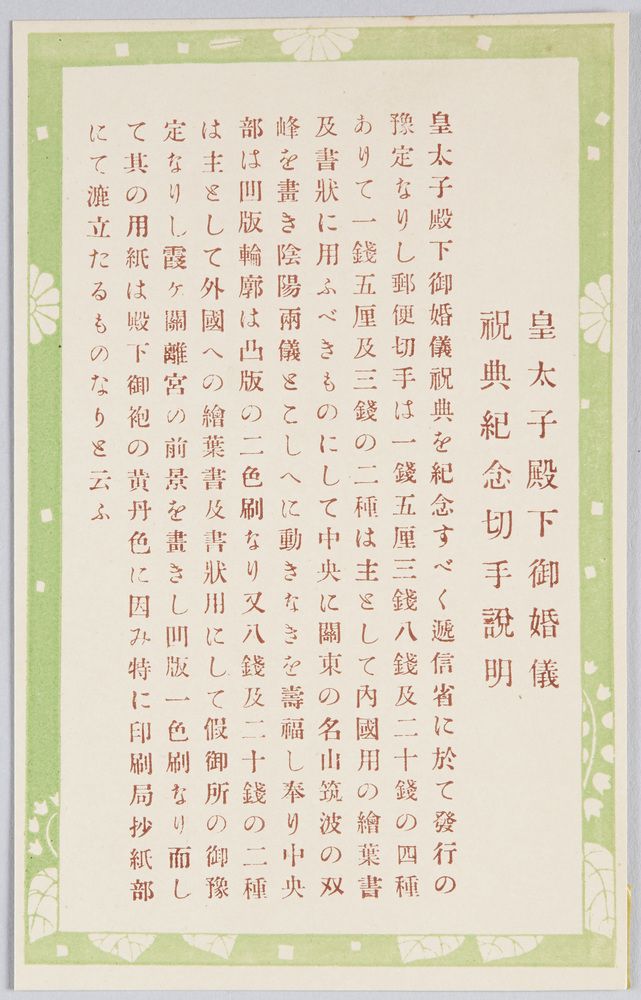 皇太子殿下御婚儀
祝典紀念切手說明
皇太子殿下御婚儀祝典を紀念すべく遞信省に於て發行の
豫定なりし郵便切手は一錢五厘三錢八錢及二十錢の四種
ありて一錢五厘及三錢の二種は主として內國用の繪葉書
及書狀に用ふべきものにして中央に關東の名山筑波の双
峰を畫き陰陽兩儀とこしへに動きなきを壽福し奉り中央
部は凹版輪廓は凸版の二色刷なり又八錢及二十錢の二種
は主として外國への繪葉書及書狀用にして假御所の御豫
定なりし霞ヶ關離宮の前景を畫きし凹版一色刷なり而し
て其の用紙は殿下御袍の黄丹色に因み特に印刷局抄紙部
にて漉立たるものなりと云ふ